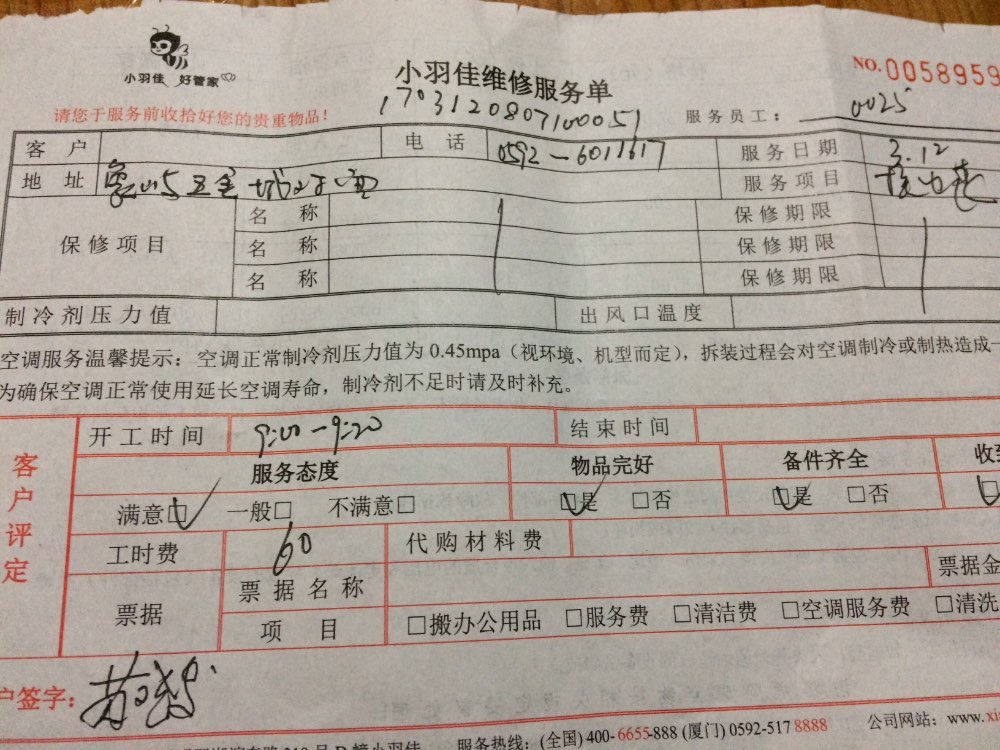 小羽佳 好管家
小羽佳维修服务单
NO.0058959
请您于服务前收拾好您的贵重物品!
1703120807100051
服务员工: 0025
客户 电话 0592-6011617 服务日期 3.12
地址 服务项目
保修项目 名称 保修期限
名称 保修期限
名称 保修期限
制冷剂压力值 出风口温度
空调服务温馨提示:空调正常制冷剂压力值为0.45mpa(视环境、机型而定),拆装过程会对空调制冷或制热造成一
为确保空调正常使用延长空调寿命,制冷剂不足时请及时补充。
客户评定
开工时间 9:00-9:20 结束时间
服务态度 物品完好 备件齐全 收到
满意□ 一般□ 不满意□ □是 □否 □是 □否 □
工时费 60 代购材料费
票据 票据名称 票据金
项目 □搬办公用品 □服务费 □清洁费 □空调服务费 □清洗
户签字:
服务热线:(全国)400-6655-888 (厦门) 0592-517 8888 公司网站:www.xi